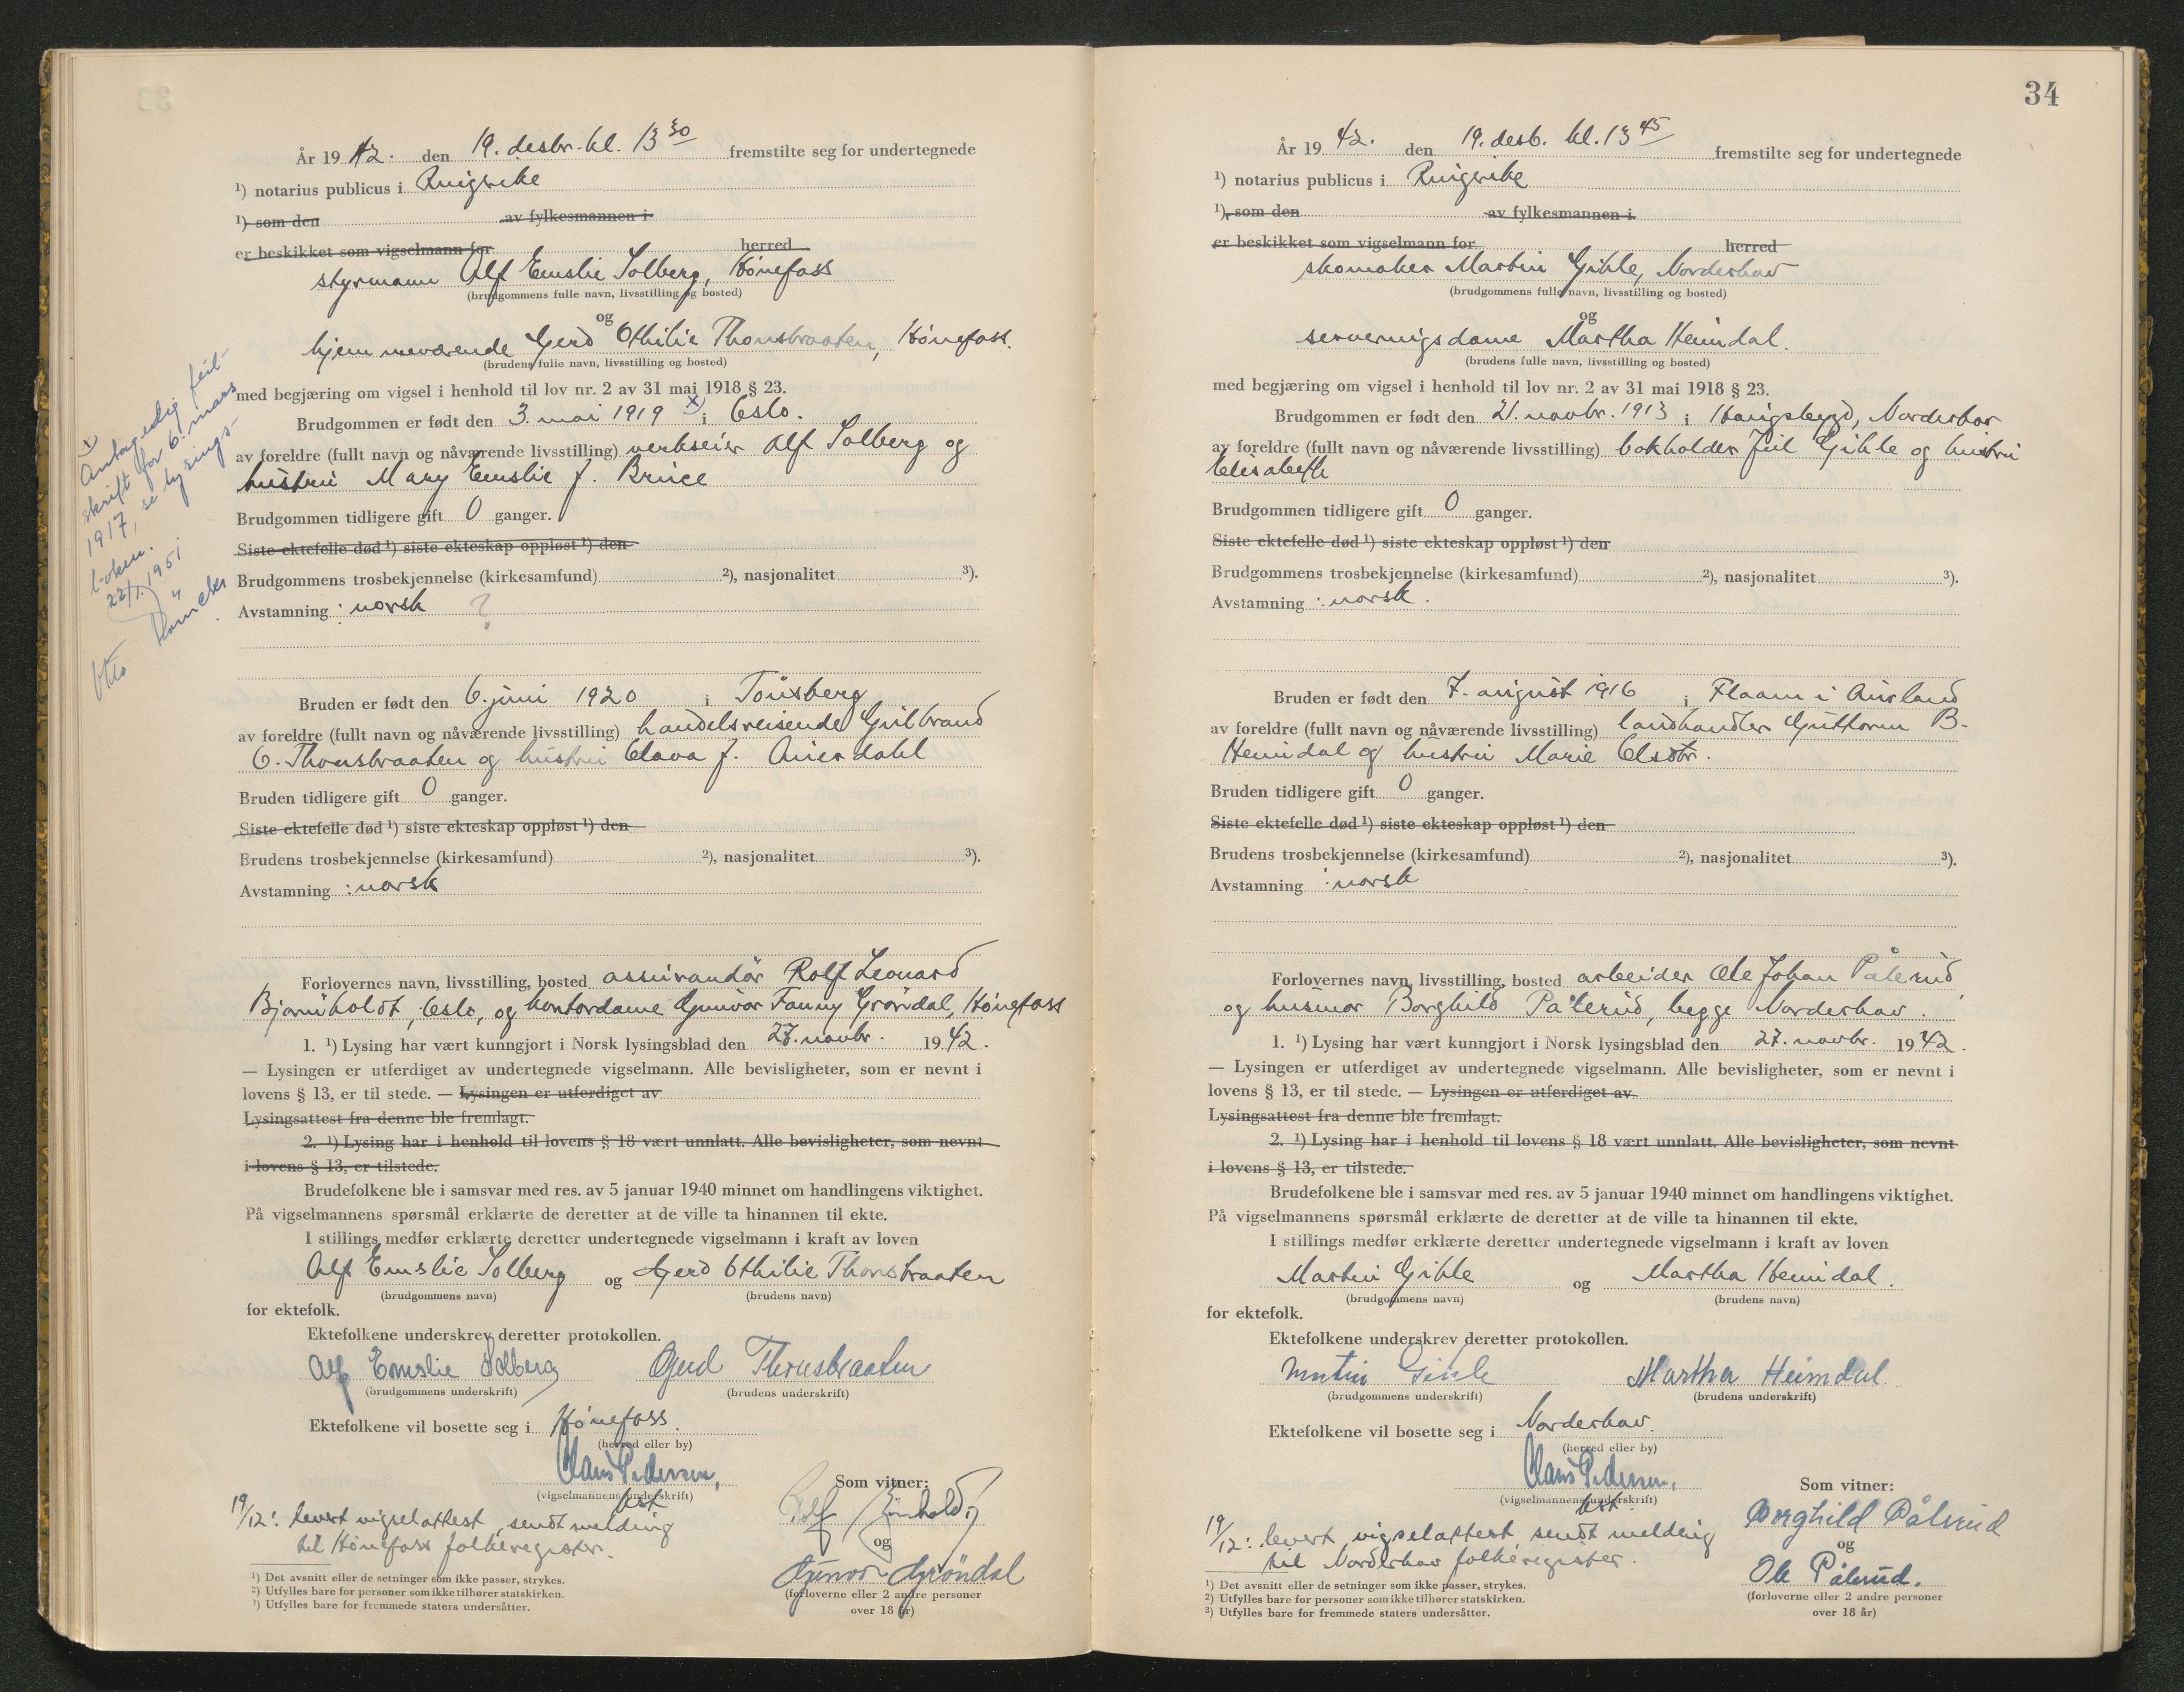 År 19 42. den 19. desbr. kl. 13 30 fremstilte seg for undertegnede
¹) notarius publicus i Ringerike
¹) som den av fylkesmannen i
er beskikket som vigselmann for herred
styrmann Alf Emslie Solberg, Hønefoss
(brudgommens fulle navn, livsstilling og bosted)
og
hjemmeværende Gerd Othilie Thonsbraaten, Hønefoss.
(brudens fulle navn, livsstilling og bosted)
med begjæring om vigsel i henhold til lov nr. 2 av 31 mai 1918 § 23.
Brudgommen er født den 3. mai 1919 x) i Oslo.
av foreldre (fullt navn og nåværende livsstilling) verkseier Alf Solberg og
hustru Mary Emslie f. Bruce
Brudgommen tidligere gift 0 ganger.
Siste ektefelle død ¹) siste ekteskap oppløst ¹) den
Brudgommens trosbekjennelse (kirkesamfund) ²), nasjonalitet ³).
Avstamning : norsk ?
x)
Antagelig feil-
skrift for 6. mars
1917, se lysings-
boken.
22/1 1951
Bruden er født den 6. juni 1920 i Tønsberg
av foreldre (fullt navn og nåværende livsstilling) handelsreisende Gulbrand
O. Thonsbraaten og hustru Clara f. Amerdahl
Bruden tidligere gift 0 ganger.
Siste ektefelle død ¹) siste ekteskap oppløst ¹) den
Brudens trosbekjennelse (kirkesamfund) ²), nasjonalitet ³).
Avstamning : norsk
Forlovernes navn, livsstilling, bosted assurandør Rolf Leonard
Bjørnholdt, Oslo, og kontordame Gunvor Fanny Grøndal, Hønefoss
1. ¹) Lysing har vært kunngjort i Norsk lysingsblad den 27. novbr. 19 42.
— Lysingen er utferdiget av undertegnede vigselmann. Alle bevisligheter, som er nevnt i
lovens § 13, er til stede. — Lysingen er utferdiget av
Lysingsattest fra denne ble fremlagt.
2. ¹) Lysing har i henhold til lovens § 18 vært unnlatt. Alle bevisligheter, som nevnt
i lovens § 13, er tilstede.
Brudefolkene ble i samsvar med res. av 5 januar 1940 minnet om handlingens viktighet.
På vigselmannens spørsmål erklærte de deretter at de ville ta hinannen til ekte.
I stillings medfør erklærte deretter undertegnede vigselmann i kraft av loven
Alf Emslie Solberg og Gerd Othilie Thonsbraaten
(brudgommens navn) (brudens navn)
for ektefolk.
Ektefolkene underskrev deretter protokollen.
Alf Emslie Solberg Gerd Thonsbraaten
(brudgommens underskrift) (brudens underskrift)
Ektefolkene vil bosette seg i Hønefoss.
(herred eller by)
Claus Pedersen,
(vigselmannens underskrift)
bst
Som vitner:
og
Gunvor Grøndal
(forloverne eller 2 andre personer
over 18 år)
19/12: levert vigselattest, sendt melding
til Hønefoss folkeregister.
¹) Det avsnitt eller de setninger som ikke passer, strykes.
²) Utfylles bare for personer som ikke tilhører statskirken.
³) Utfylles bare for fremmede staters undersåtter.
34
År 19 42. den 19. desb. kl. 13 45 fremstilte seg for undertegnede
¹) notarius publicus i Ringerike
¹) som den av fylkesmannen i
er beskikket som vigselmann for herred
skomaker Martin Gihle, Norderhov
(brudgommens fulle navn, livsstilling og bosted)
og
serveringsdame Martha Heimdal.
(brudens fulle navn, livsstilling og bosted)
med begjæring om vigsel i henhold til lov nr. 2 av 31 mai 1918 § 23.
Brudgommen er født den 21. novbr. 1913 i Haugsbygd, Norderhov
av foreldre (fullt navn og nåværende livsstilling) bokholder Jul Gihle og hustru
Elisabeth
Brudgommen tidligere gift 0 ganger.
Siste ektefelle død ¹) siste ekteskap oppløst ¹) den
Brudgommens trosbekjennelse (kirkesamfund) ²), nasjonalitet ³).
Avstamning : norsk.
Bruden er født den 7. august 1916 i Flaam i Aurland
av foreldre (fullt navn og nåværende livsstilling) landhandler Guttorm B.
Heimdal og hustru Marie Olsdtr.
Bruden tidligere gift 0 ganger.
Siste ektefelle død ¹) siste ekteskap oppløst ¹) den
Brudens trosbekjennelse (kirkesamfund) ²), nasjonalitet ³).
Avstamning : norsk
Forlovernes navn, livsstilling, bosted arbeider Ole Johan Pålerud
og husmor Borghild Pålerud, begge Norderhov.
1. ¹) Lysing har vært kunngjort i Norsk lysingsblad den 27. novbr. 19 42.
— Lysingen er utferdiget av undertegnede vigselmann. Alle bevisligheter, som er nevnt i
lovens § 13, er til stede. — Lysingen er utferdiget av
Lysingsattest fra denne ble fremlagt.
2. ¹) Lysing har i henhold til lovens § 18 vært unnlatt. Alle bevisligheter, som nevnt
i lovens § 13, er tilstede.
Brudefolkene ble i samsvar med res. av 5 januar 1940 minnet om handlingens viktighet.
På vigselmannens spørsmål erklærte de deretter at de ville ta hinannen til ekte.
I stillings medfør erklærte deretter undertegnede vigselmann i kraft av loven
Martin Gihle og Martha Heimdal.
(brudgommens navn) (brudens navn)
for ektefolk.
Ektefolkene underskrev deretter protokollen.
Martin Gihle Martha Heimdal.
(brudgommens underskrift) (brudens underskrift)
Ektefolkene vil bosette seg i Norderhov.
(herred eller by)
Claus Pedersen,
(vigselmannens underskrift)
bst.
Som vitner:
Borghild Pålerud
og
Ole Pålerud.
(forloverne eller 2 andre personer
over 18 år)
19/12: levert vigselattest sendt melding
til Norderhov folkeregister.
¹) Det avsnitt eller de setninger som ikke passer, strykes.
²) Utfylles bare for personer som ikke tilhører statskirken.
³) Utfylles bare for fremmede staters undersåtter.